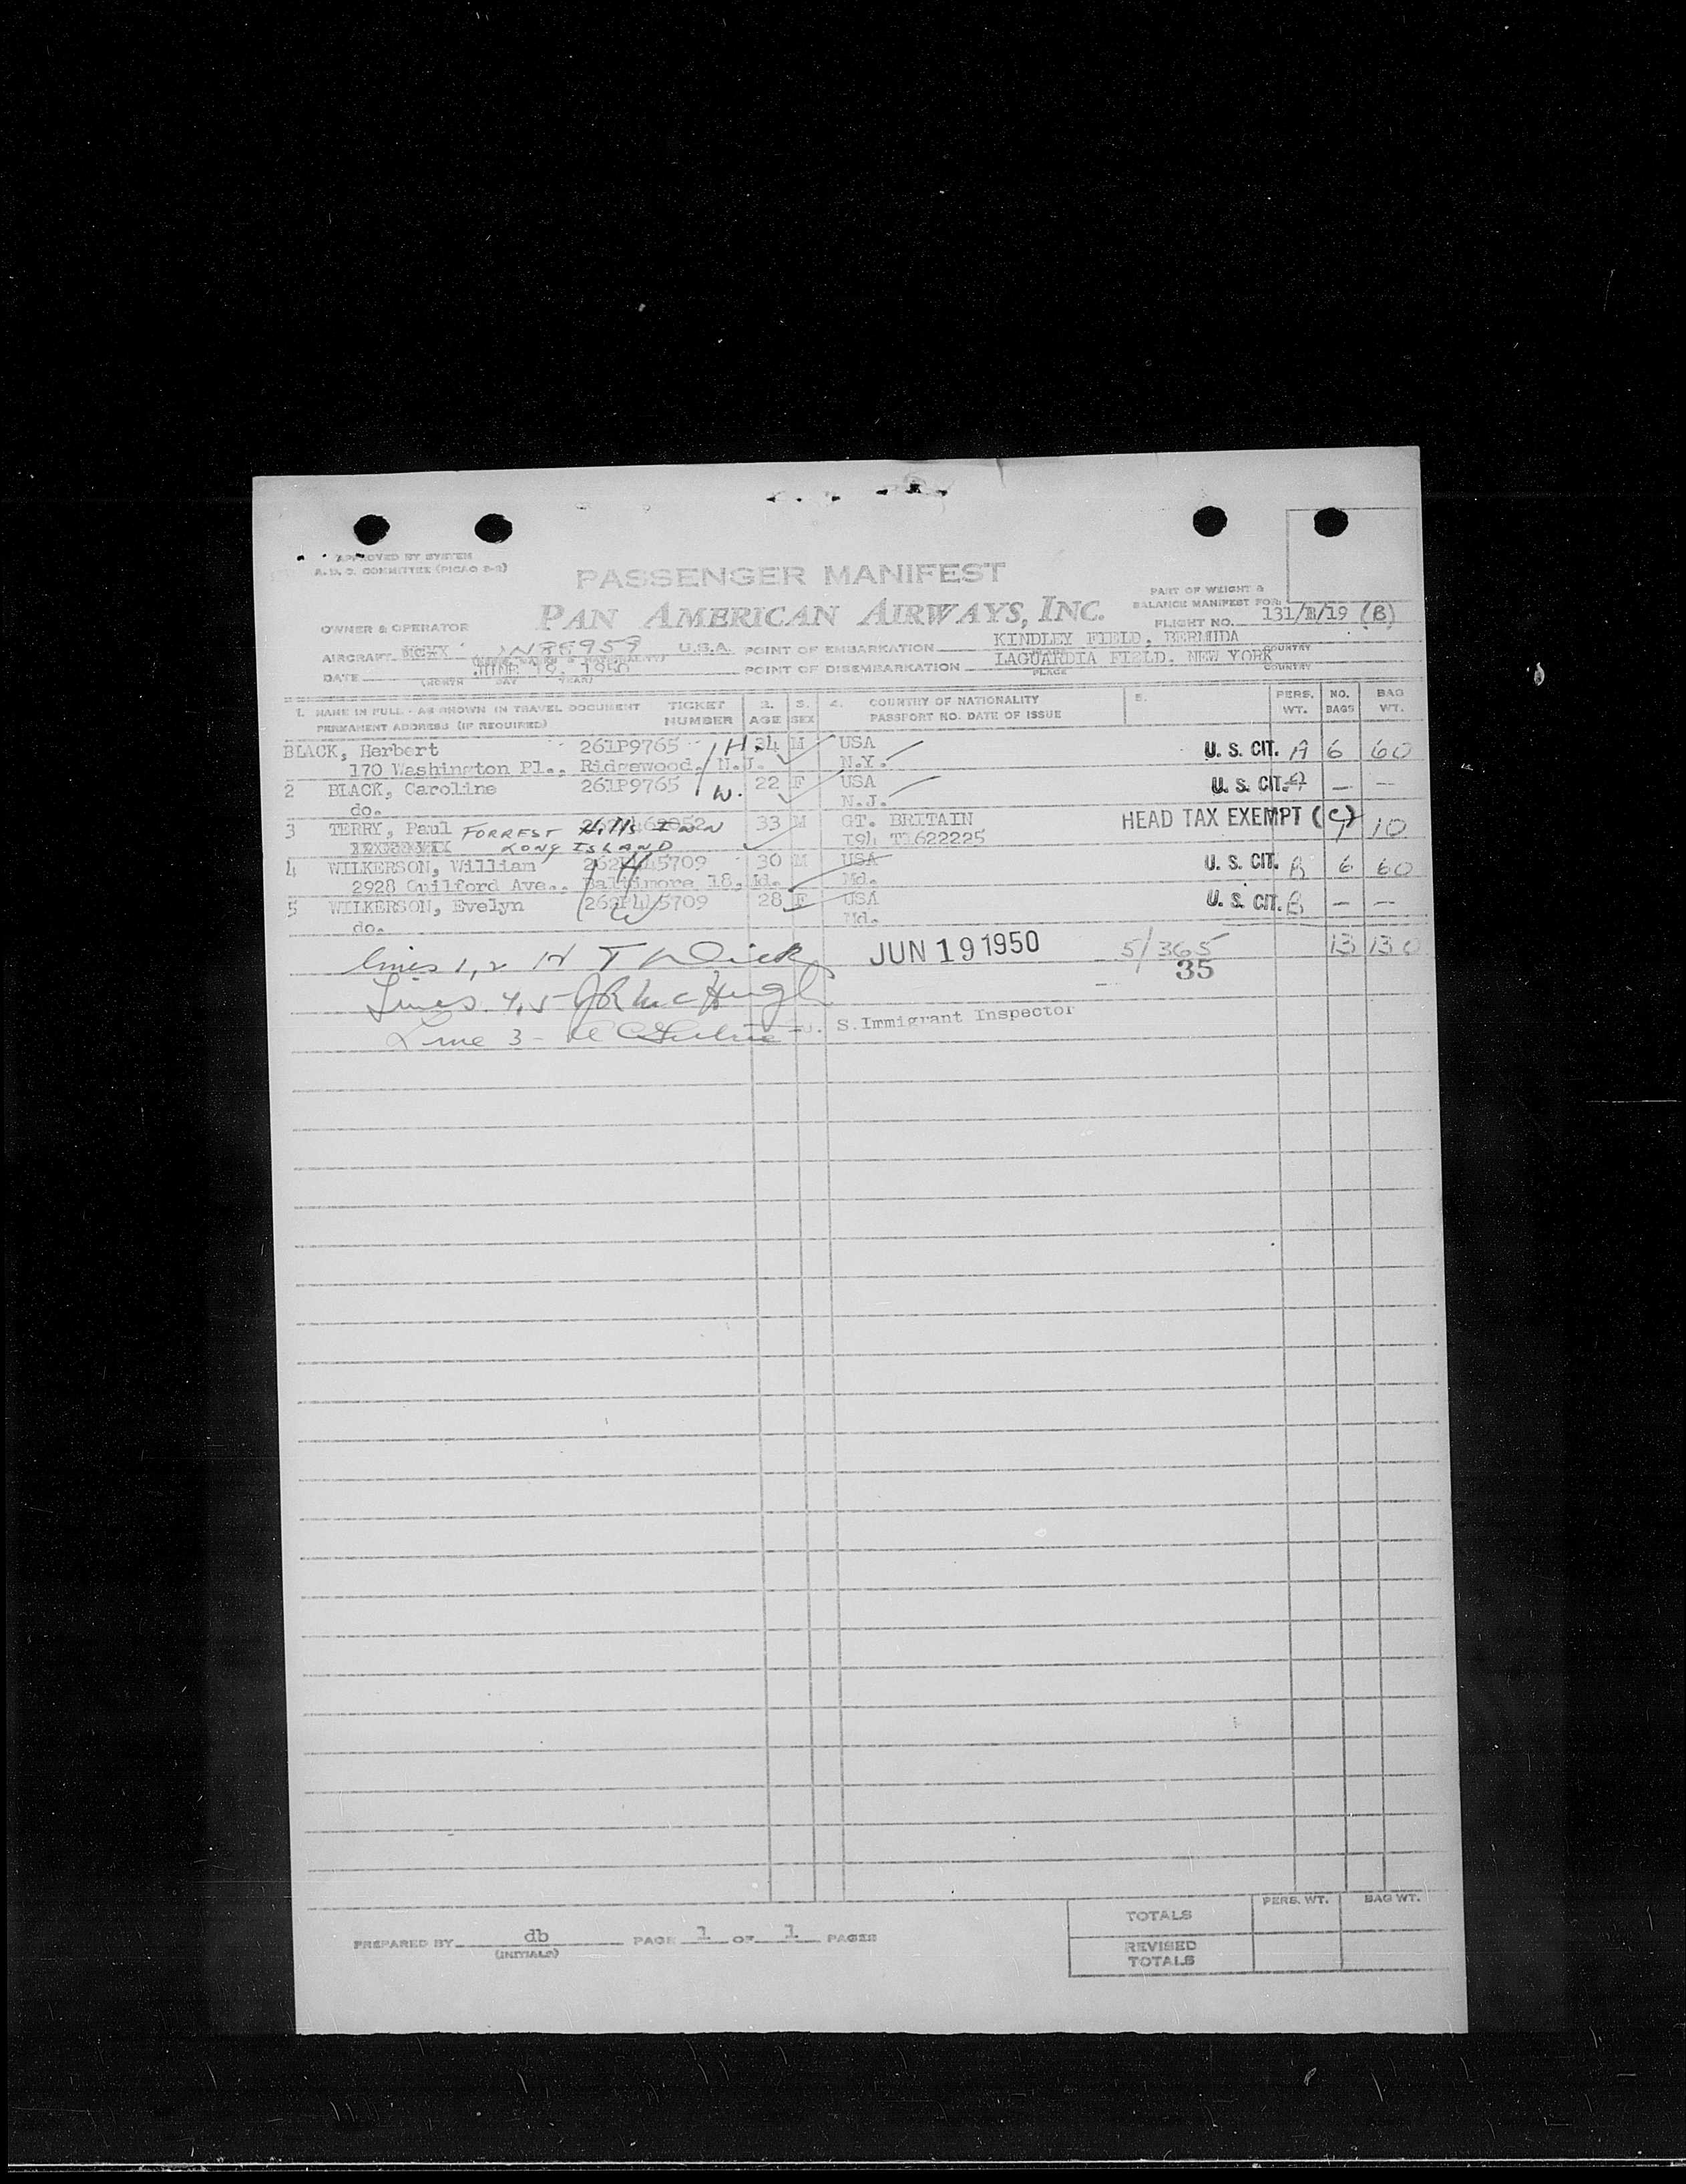 APPROVED BY SYSTEM
A. D. C. COMMITTEE (PICAO 2-2)
PASSENGER MANIFEST
PAN AMERICAN AIRWAYS, INC.
PART OF WEIGHT &
BALANCE MANIFEST FOR
FLIGHT NO. 131/19 (B)
OWNER & OPERATOR
AIRCRAFT U.S.A. POINT OF EMBARKATION KINDLEY FIELD, BERMUDA
COUNTRY
DATE JUNE 19, 1950 POINT OF DISEMBARKATION LAGUARDIA FIELD, NEW YORK
(MONTH DAY YEAR) PLACE COUNTRY
1. NAME IN FULL - AS SHOWN IN TRAVEL DOCUMENT TICKET 2. 3. 4. COUNTRY OF NATIONALITY 5. PERS. NO. BAG
PERMANENT ADDRESS (IF REQUIRED) NUMBER AGE SEX PASSPORT NO. DATE OF ISSUE WT. BAGS WT.
BLACK, Herbert 261P9765 H. 34 M USA U. S. CIT. A 6 60
170 Washington Pl., Ridgewood, N.J. N.Y.
2 BLACK, Caroline 261P9765 W. 22 F USA U. S. CIT. A — —
do. N.J.
3 TERRY, Paul FORREST Hills INN 33 M GT. BRITAIN HEAD TAX EXEMPT (C) 1 10
LONG ISLAND I94 T1622225
4 WILKERSON, William H 30 M USA U. S. CIT. B 6 60
2928 Guilford Ave., Baltimore 18, Md. Md.
5 WILKERSON, Evelyn W 28 F USA U. S. CIT. B — —
do. Md.
lines 1,2 JUN 19 1950 5/365 13 130
35
Lines 4,5 J R McHugh
Line 3 - U. S. Immigrant Inspector
PERS. WT. BAG WT.
TOTALS
PREPARED BY db PAGE 1 OF 1 PAGES
(INITIALS)
REVISED
TOTALS